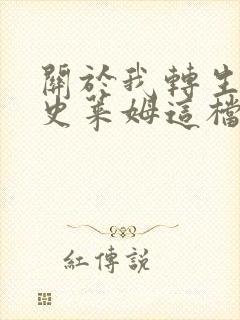 關於我轉生
史萊姆這檔
紅傳說